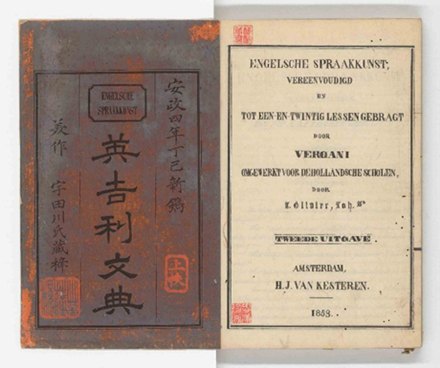 安政四年丁巳新鐫
ENGELSCHE
SPRAAKKUNST
英吉利文典
美作 宇田川氏藏梓
ENGELSCHE SPRAAKKUNST,
VEREENVOUDIGD
EN
TOT EEN-EN-TWINTIG LESSEN GEBRAGT
DOOR
VERGANI
OMGEWERKT VOOR DE HOLLANDSCHE SCHOLEN,
DOOR
L. Olivier, Joh.
TWEEDE UITGAVE.
AMSTERDAM,
H. J. VAN KESTEREN.
1853.